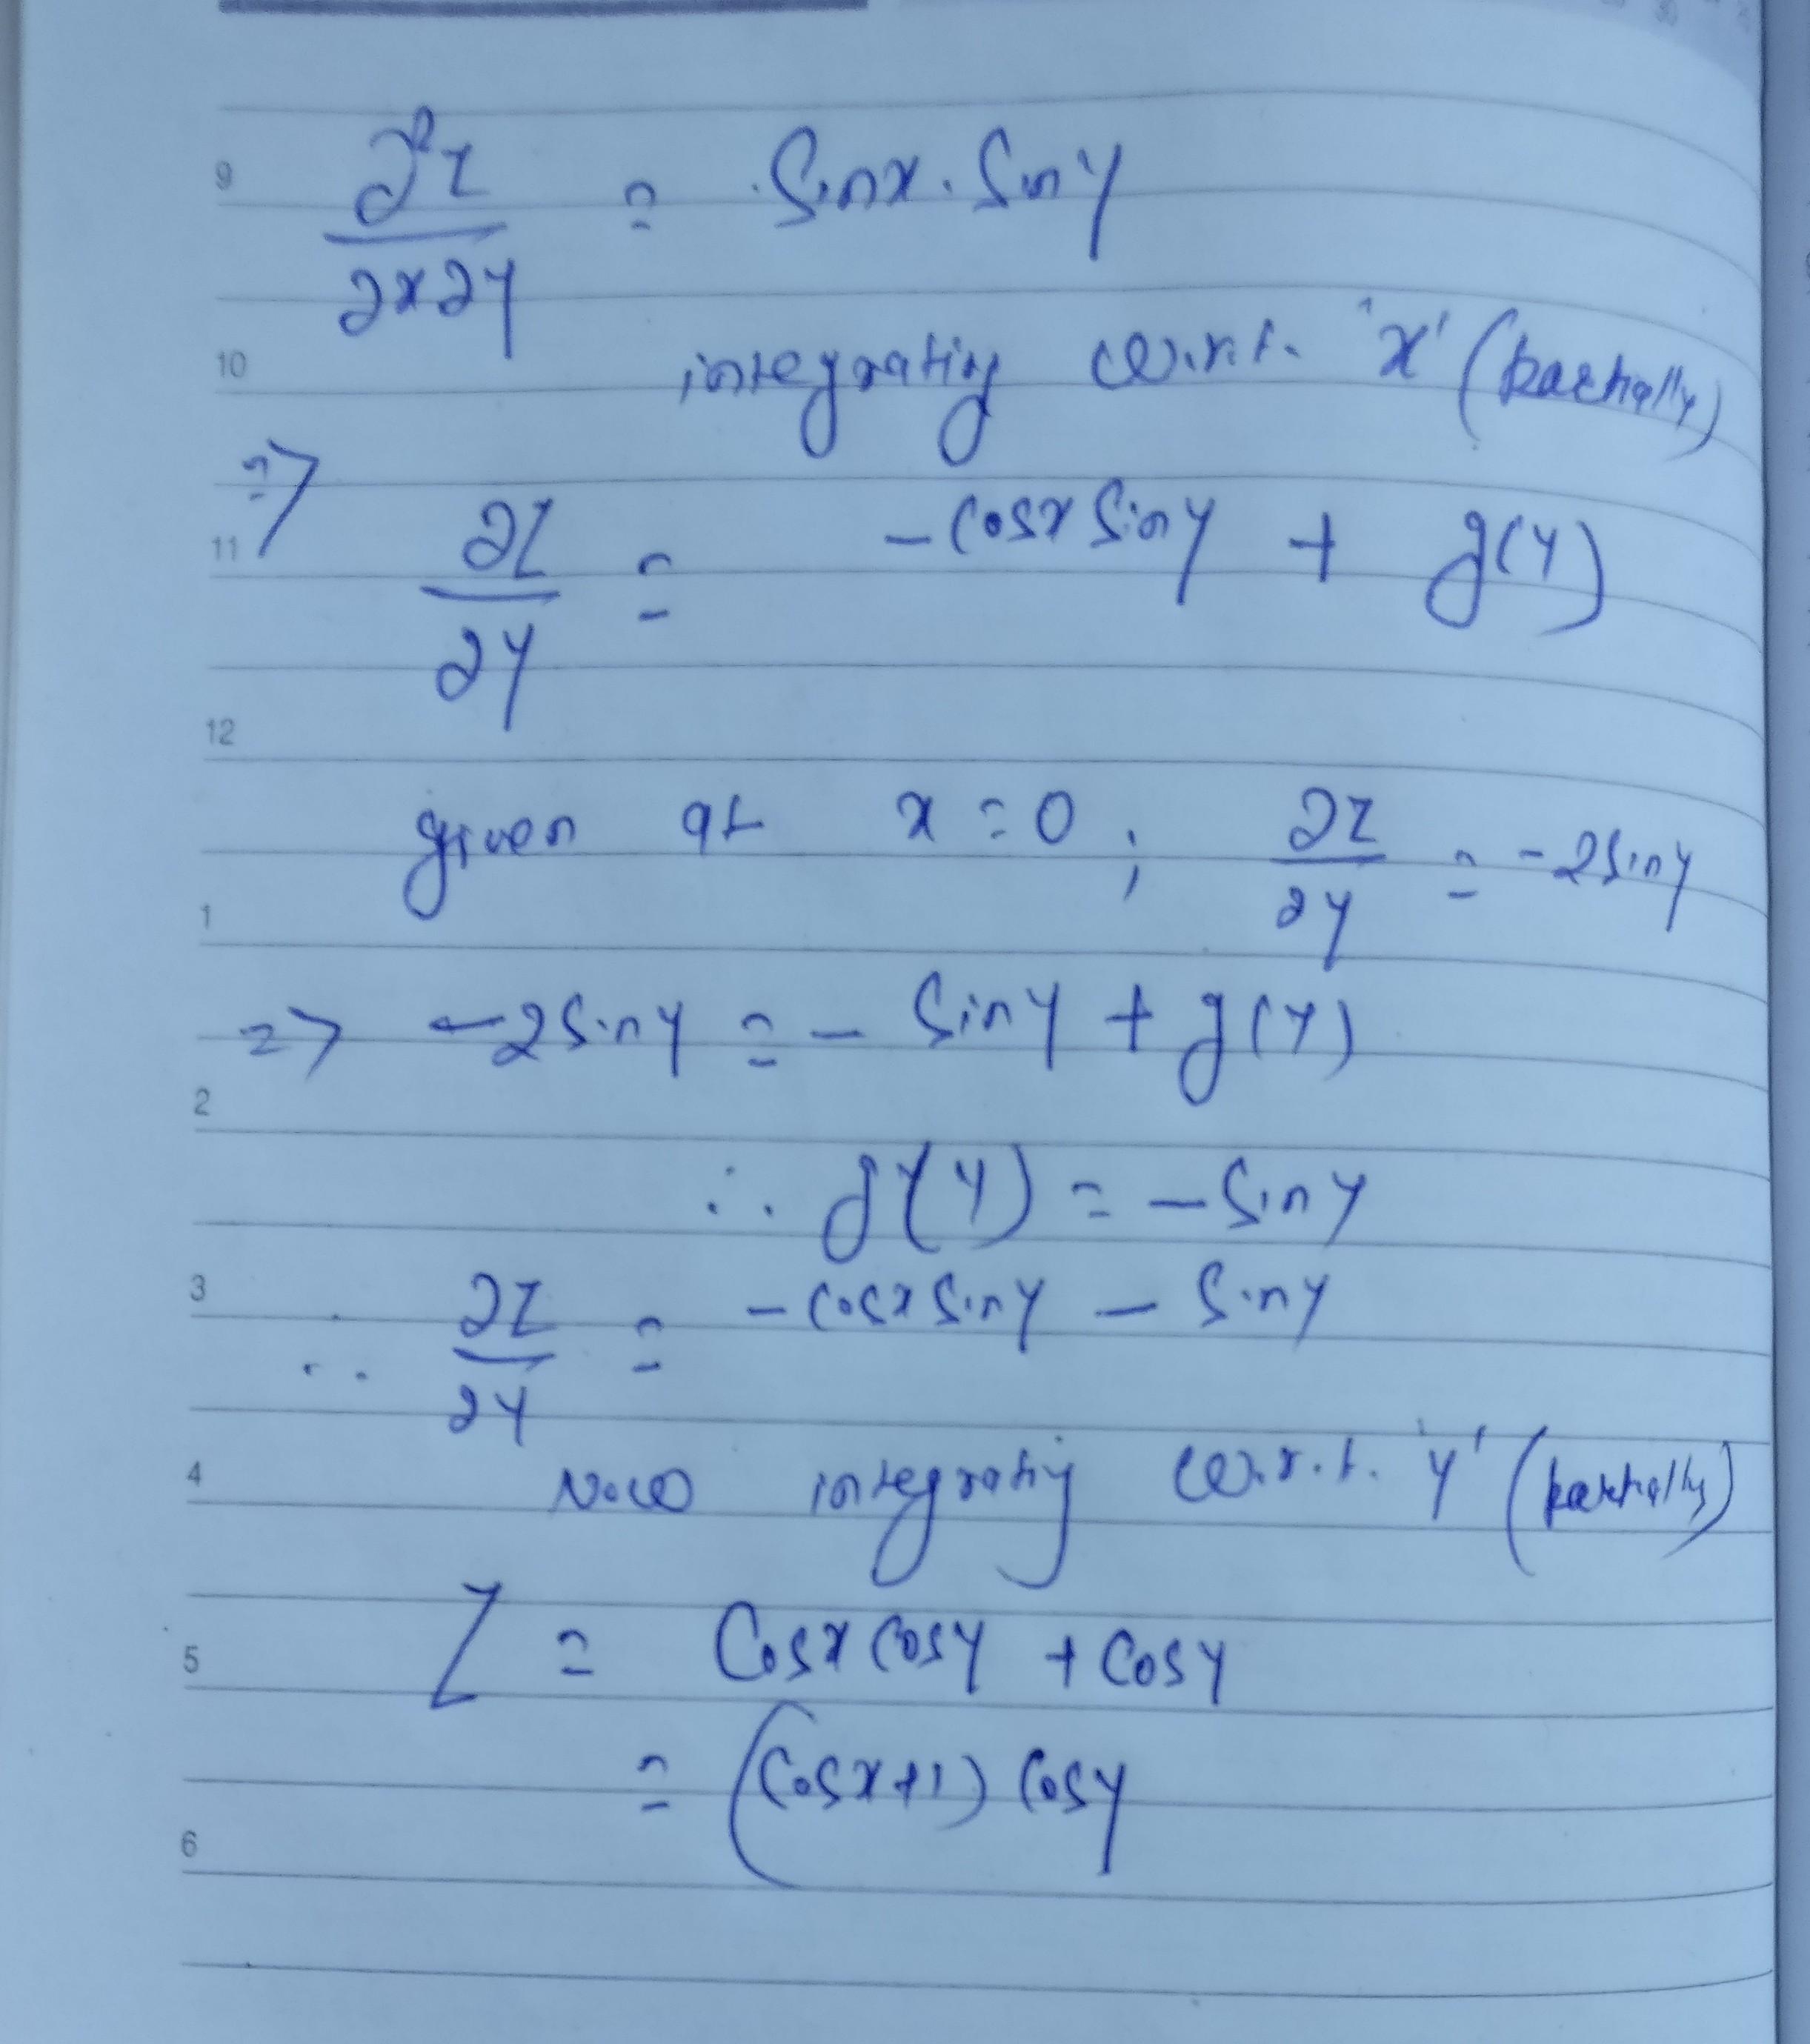 9 ∂²z/∂x∂y = Sinx . Siny
10 integrating w.r.t. 'x' (partially)
11 => ∂z/∂y = - Cosx Siny + g(y)
12
given at x = 0 ; ∂z/∂y = -2Siny
1
=> -2Siny = - Siny + g(y)
2
∴ g(y) = - Siny
3 ∴ ∂z/∂y = - Cosx Siny - Siny
4 Now integrating w.r.t. 'y' (partially)
5 Z = Cosx Cosy + Cosy
= (Cosx+1) Cosy
6